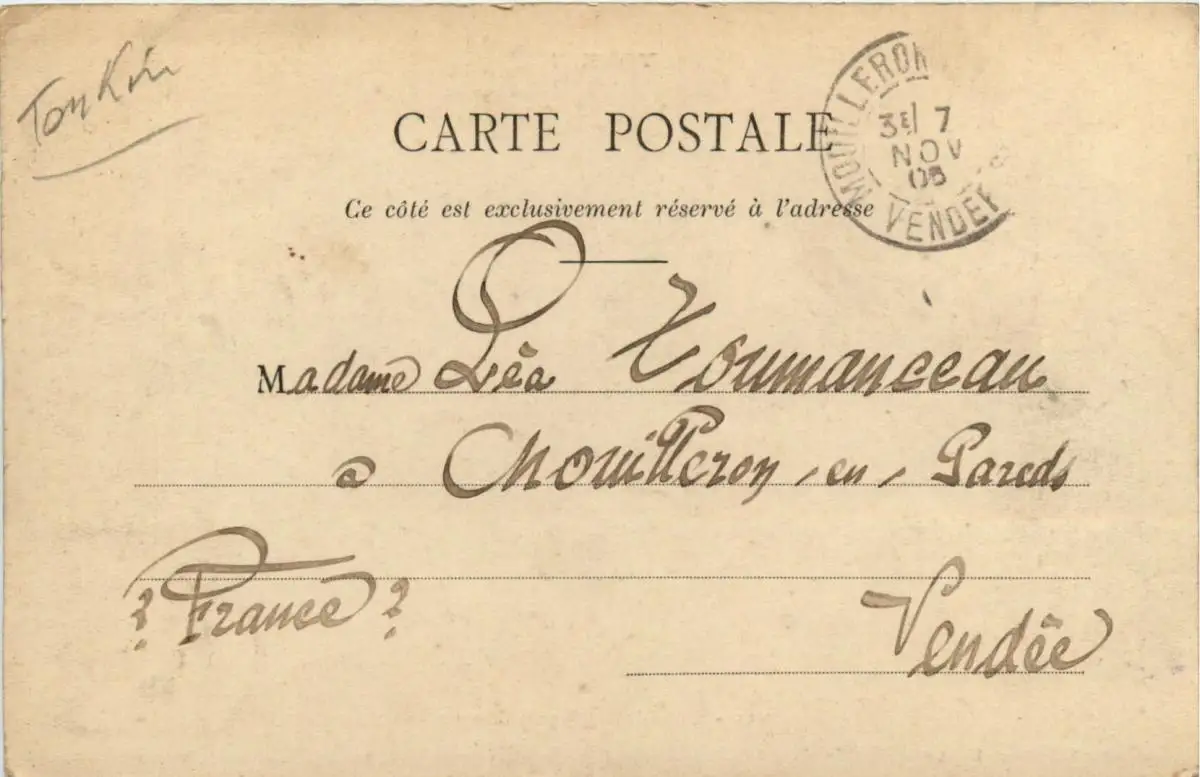 Tonkin
CARTE POSTALE
Ce côté est exclusivement réservé à l'adresse
MOUILLERON
3E 7
NOV
05
VENDEE
Madame Léa Toumanceau
a Mouilleron-en-Pareds
? France ?
Vendée